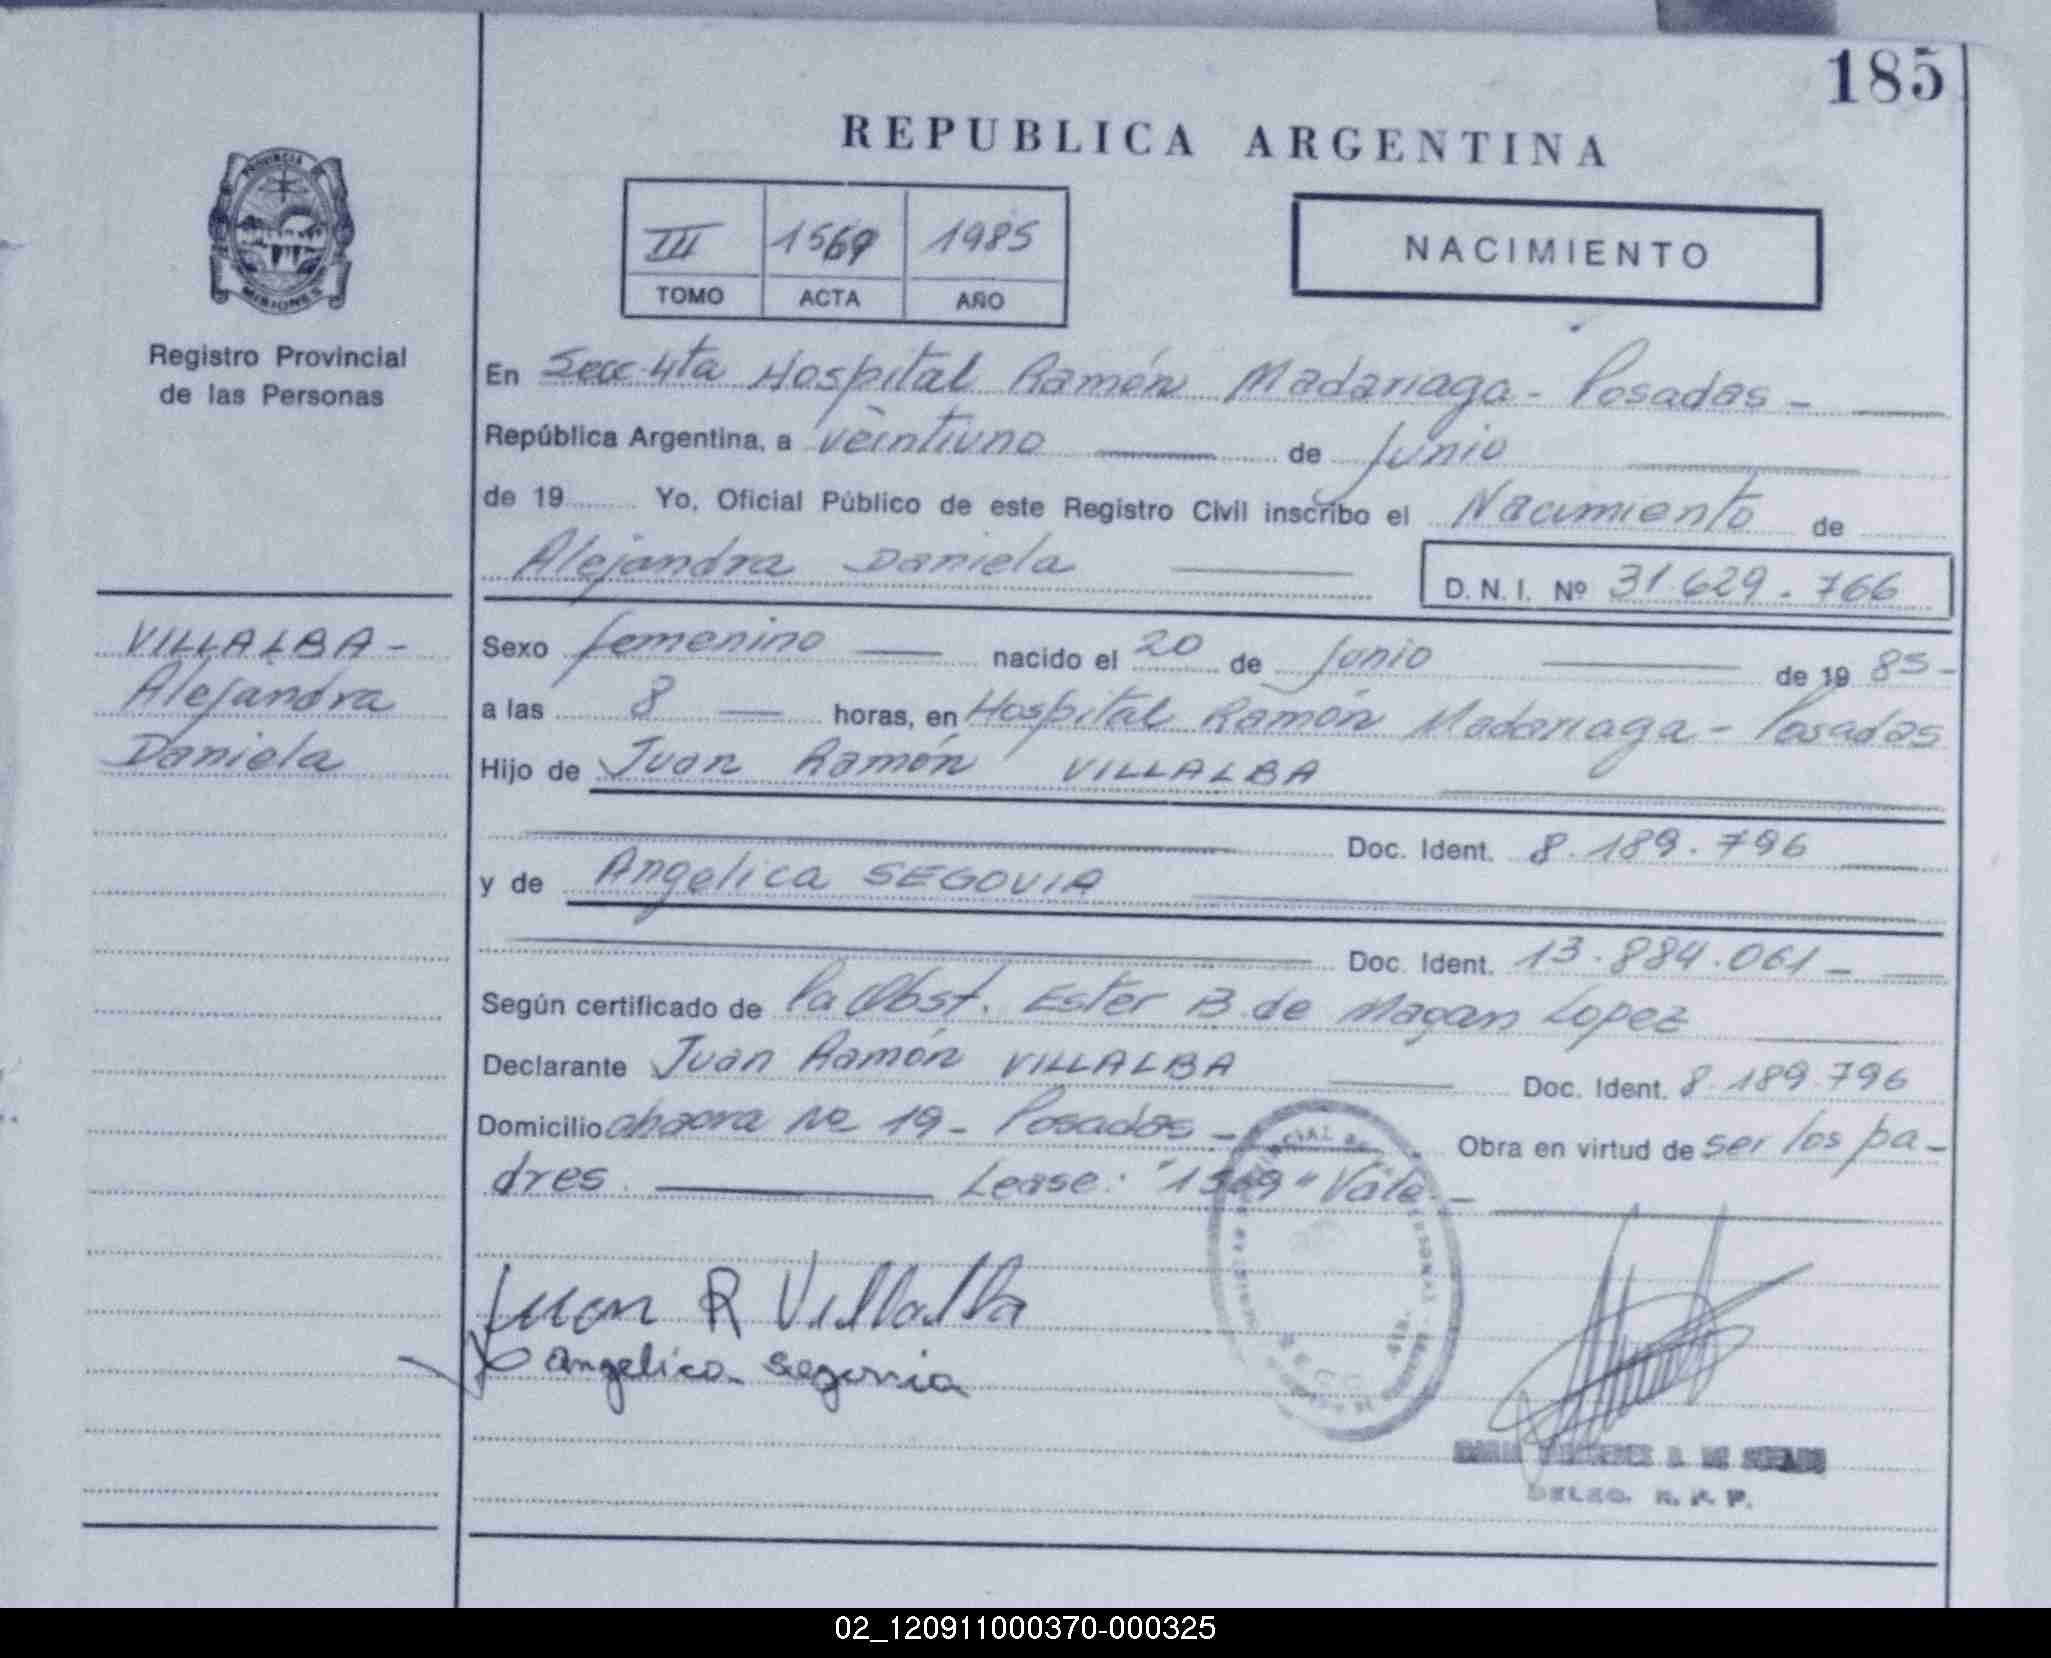 185
REPUBLICA ARGENTINA
PROVINCIA DE
MISIONES
Registro Provincial
de las Personas
III 1569 1985
TOMO ACTA AÑO
NACIMIENTO
En Secc 4ta Hospital Ramón Madariaga - Posadas -
República Argentina, a veintiuno de Junio
de 19 Yo, Oficial Público de este Registro Civil inscribo el Nacimiento de
Alejandra Daniela
D. N. I. Nº 31.629.766
VILLALBA -
Alejandra
Daniela
Sexo femenino nacido el 20 de Junio de 19 85 -
a las 8 horas, en Hospital Ramón Madariaga - Posadas
Hijo de Juan Ramón VILLALBA
Doc. Ident. 8.189.796
y de Angelica SEGOVIA
Doc. Ident. 13.884.061 -
Según certificado de la Obst. Ester B de Magan Lopez
Declarante Juan Ramón VILLALBA Doc. Ident. 8.189.796
Domicilio chacra Nº 19 - Posadas - Obra en virtud de ser los pa-
dres. Lease: "1569" Vale. -
Juan R Villalba
Angelica Segovia
DELEG. R. P. P.
02_120911000370-000325